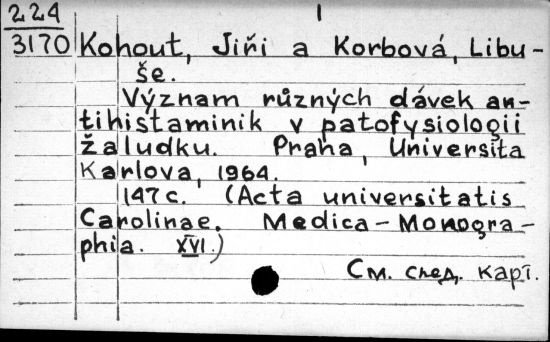 224
1
3170 Kohout, Jiři a Korbová, Libu-
še.
Význam různých dávek an-
tihistaminik v patofysiologii
žaludku. Praha, Universita
Karlova, 1964.
147 c. (Acta universitatis
Carolinae. Medica-Monogra-
phia. XVI.)
См. след. карт.